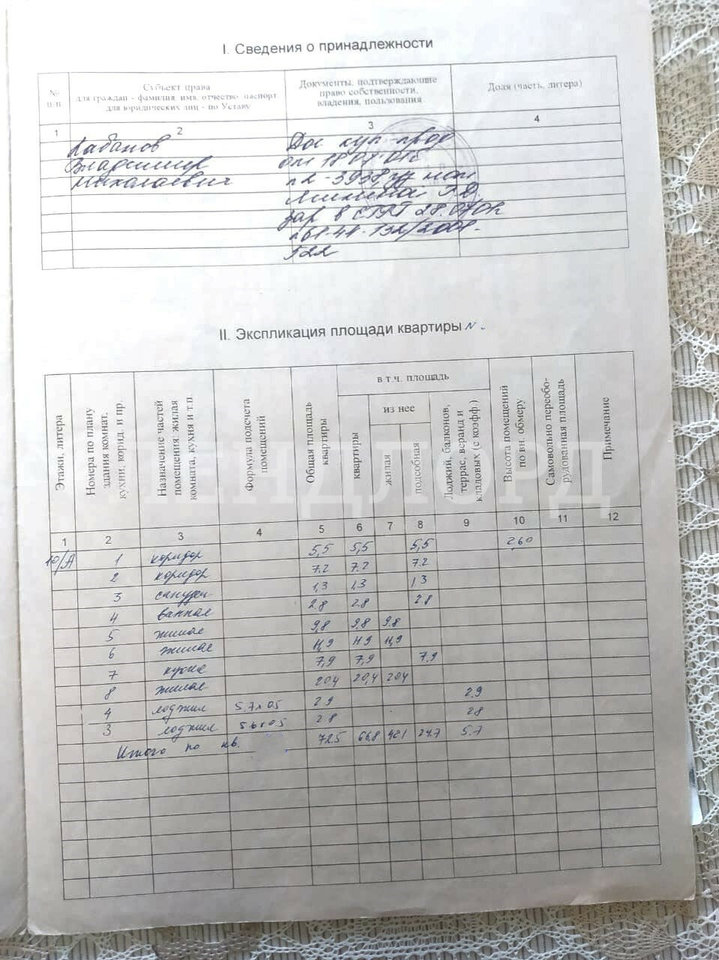 I. Сведения о принадлежности
№ п.п.
Субъект права
для граждан - фамилия, имя, отчество, паспорт
для юридических лиц - по Уставу
Документы, подтверждающие
право собственности,
владения, пользования
Доля (часть, литера)
1 2 3 4
Лабанов Дог куп-прод
Владимир от 18.07.01г
Николаевич р2-3938
зар в 28.07.01г
II. Экспликация площади квартиры №
Этажи, литера
Номера по плану
здания комнат,
кухни, корид. и пр
Назначение частей
помещения: жилая
комната, кухня и т.п.
Формула подсчета
помещений
Общая площадь
квартиры
в т.ч. площадь
квартиры
из нее
жилая
подсобная
Лоджий, балконов,
террас, веранд и
кладовых (с коэфф.)
Высота помещений
по вн. обмеру
Самовольно переобо-
рудованная площадь
Примечание
1 2 3 4 5 6 7 8 9 10 11 12
10/А 1 коридор 5,5 5,5 5,5 2.60
2 коридор 7.2 7.2 7.2
3 санузел 1,3 1,3 1,3
4 ванная 2.8 2.8 2.8
5 жилая 9,8 9,8 9,8
6 жилая 11,9 11,9 11,9
7 кухня 7,9 7,9 7,9
8 жилая 20,4 20,4 20,4
4 лоджия 5.7х0.5 2.9 2,9
3 лоджия 5.6х0.5 2.8 2.8
Итого по кв. 72.5 66,8 42,1 24.7 5.7
ЛЕНДЛОРД